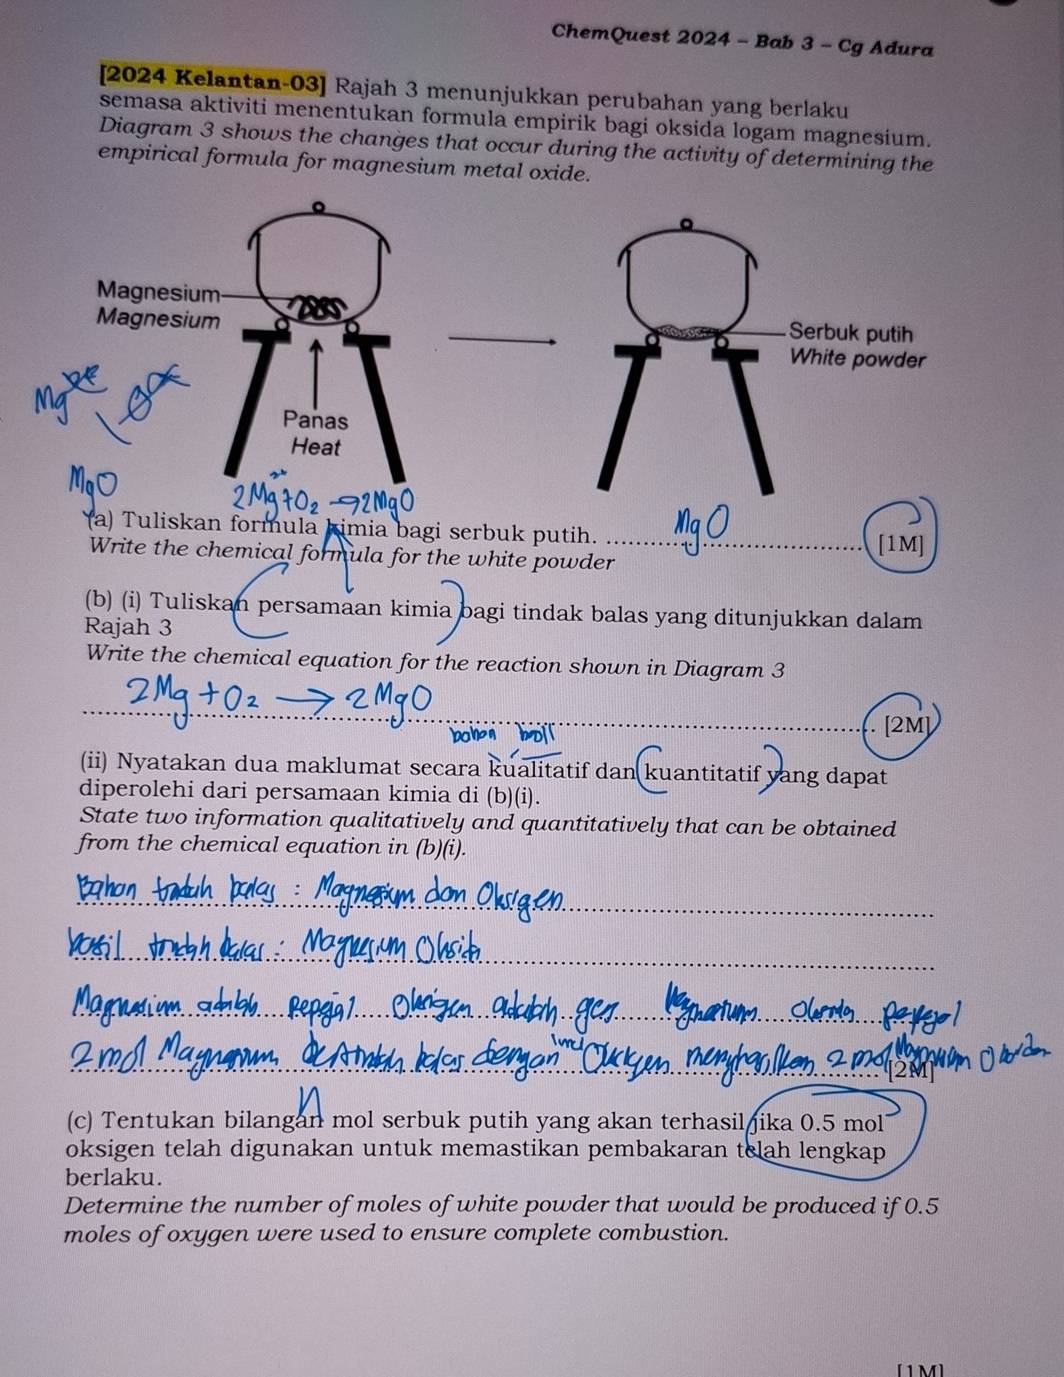 ChemQuest 2024 - Bab 3 - Cg Adura
[2024 Kelantan-03] Rajah 3 menunjukkan perubahan yang berlaku
semasa aktiviti menentukan formula empirik bagi oksida logam magnesium.
Diagram 3 shows the changes that occur during the activity of determining the
empirical formula for magnesium metal oxide.
Magnesium
Magnesium
Serbuk putih
White powder
Mg
Panas
Heat
MgO
2Mg²⁺+O₂ → 2MgO
(a) Tuliskan formula kimia bagi serbuk putih. MgO [1M]
Write the chemical formula for the white powder
(b) (i) Tuliskan persamaan kimia bagi tindak balas yang ditunjukkan dalam
Rajah 3
Write the chemical equation for the reaction shown in Diagram 3
2Mg + O₂ → 2MgO
[2M]
bahan
(ii) Nyatakan dua maklumat secara kualitatif dan kuantitatif yang dapat
diperolehi dari persamaan kimia di (b)(i).
State two information qualitatively and quantitatively that can be obtained
from the chemical equation in (b)(i).
Bahan tindak balas : Magnesium dan Oksigen
Hasil tindak balas : Magnesium Oksida
Magnesium adalah pepejal Oksigen adalah gas Magnesium Oksida pepejal
2 mol Magnesium bertindak balas dengan 1 mol Oksigen menghasilkan 2 mol Magnesium Oksida
[2M]
n
(c) Tentukan bilangan mol serbuk putih yang akan terhasil jika 0.5 mol
oksigen telah digunakan untuk memastikan pembakaran telah lengkap
berlaku.
Determine the number of moles of white powder that would be produced if 0.5
moles of oxygen were used to ensure complete combustion.
[1M]